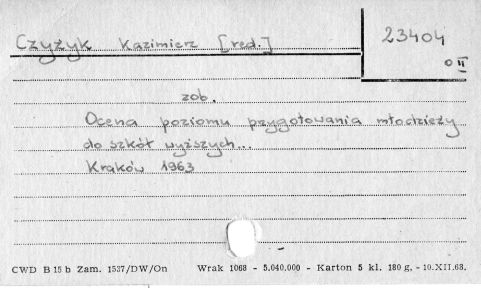 Czyżyk Kazimierz [red.]
23404
O II
zob.
Ocena poziomu przygotowania młodzieży
do szkół wyższych...
Kraków 1963
CWD B 15 b Zam. 1537/DW/On Wrak 1068 - 5.040.000 - Karton 5 kl. 180 g. - 10.XII.68.